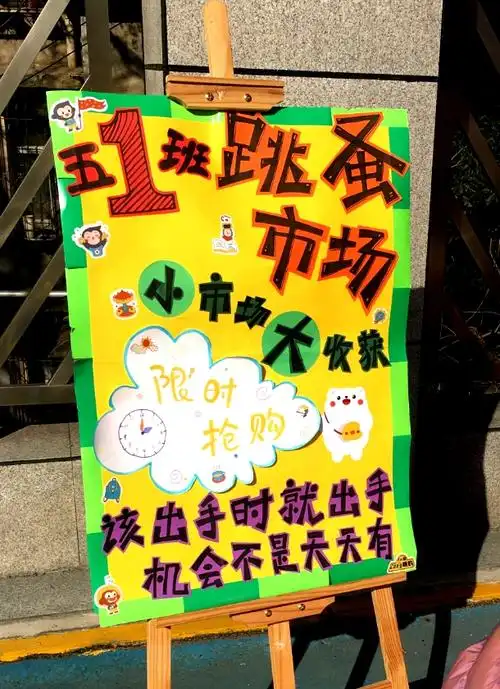 五1班跳蚤
市场
小市场大收获
限时
抢购
该出手时就出手
机会不是天天有